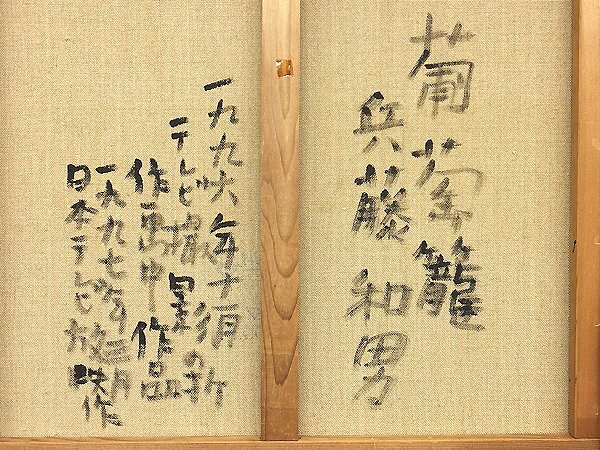 葡萄籠
兵藤和男
一九九六年十一月の折
テレビ撮影
作画中作品
一九九七年三月
日本テレビ放映作